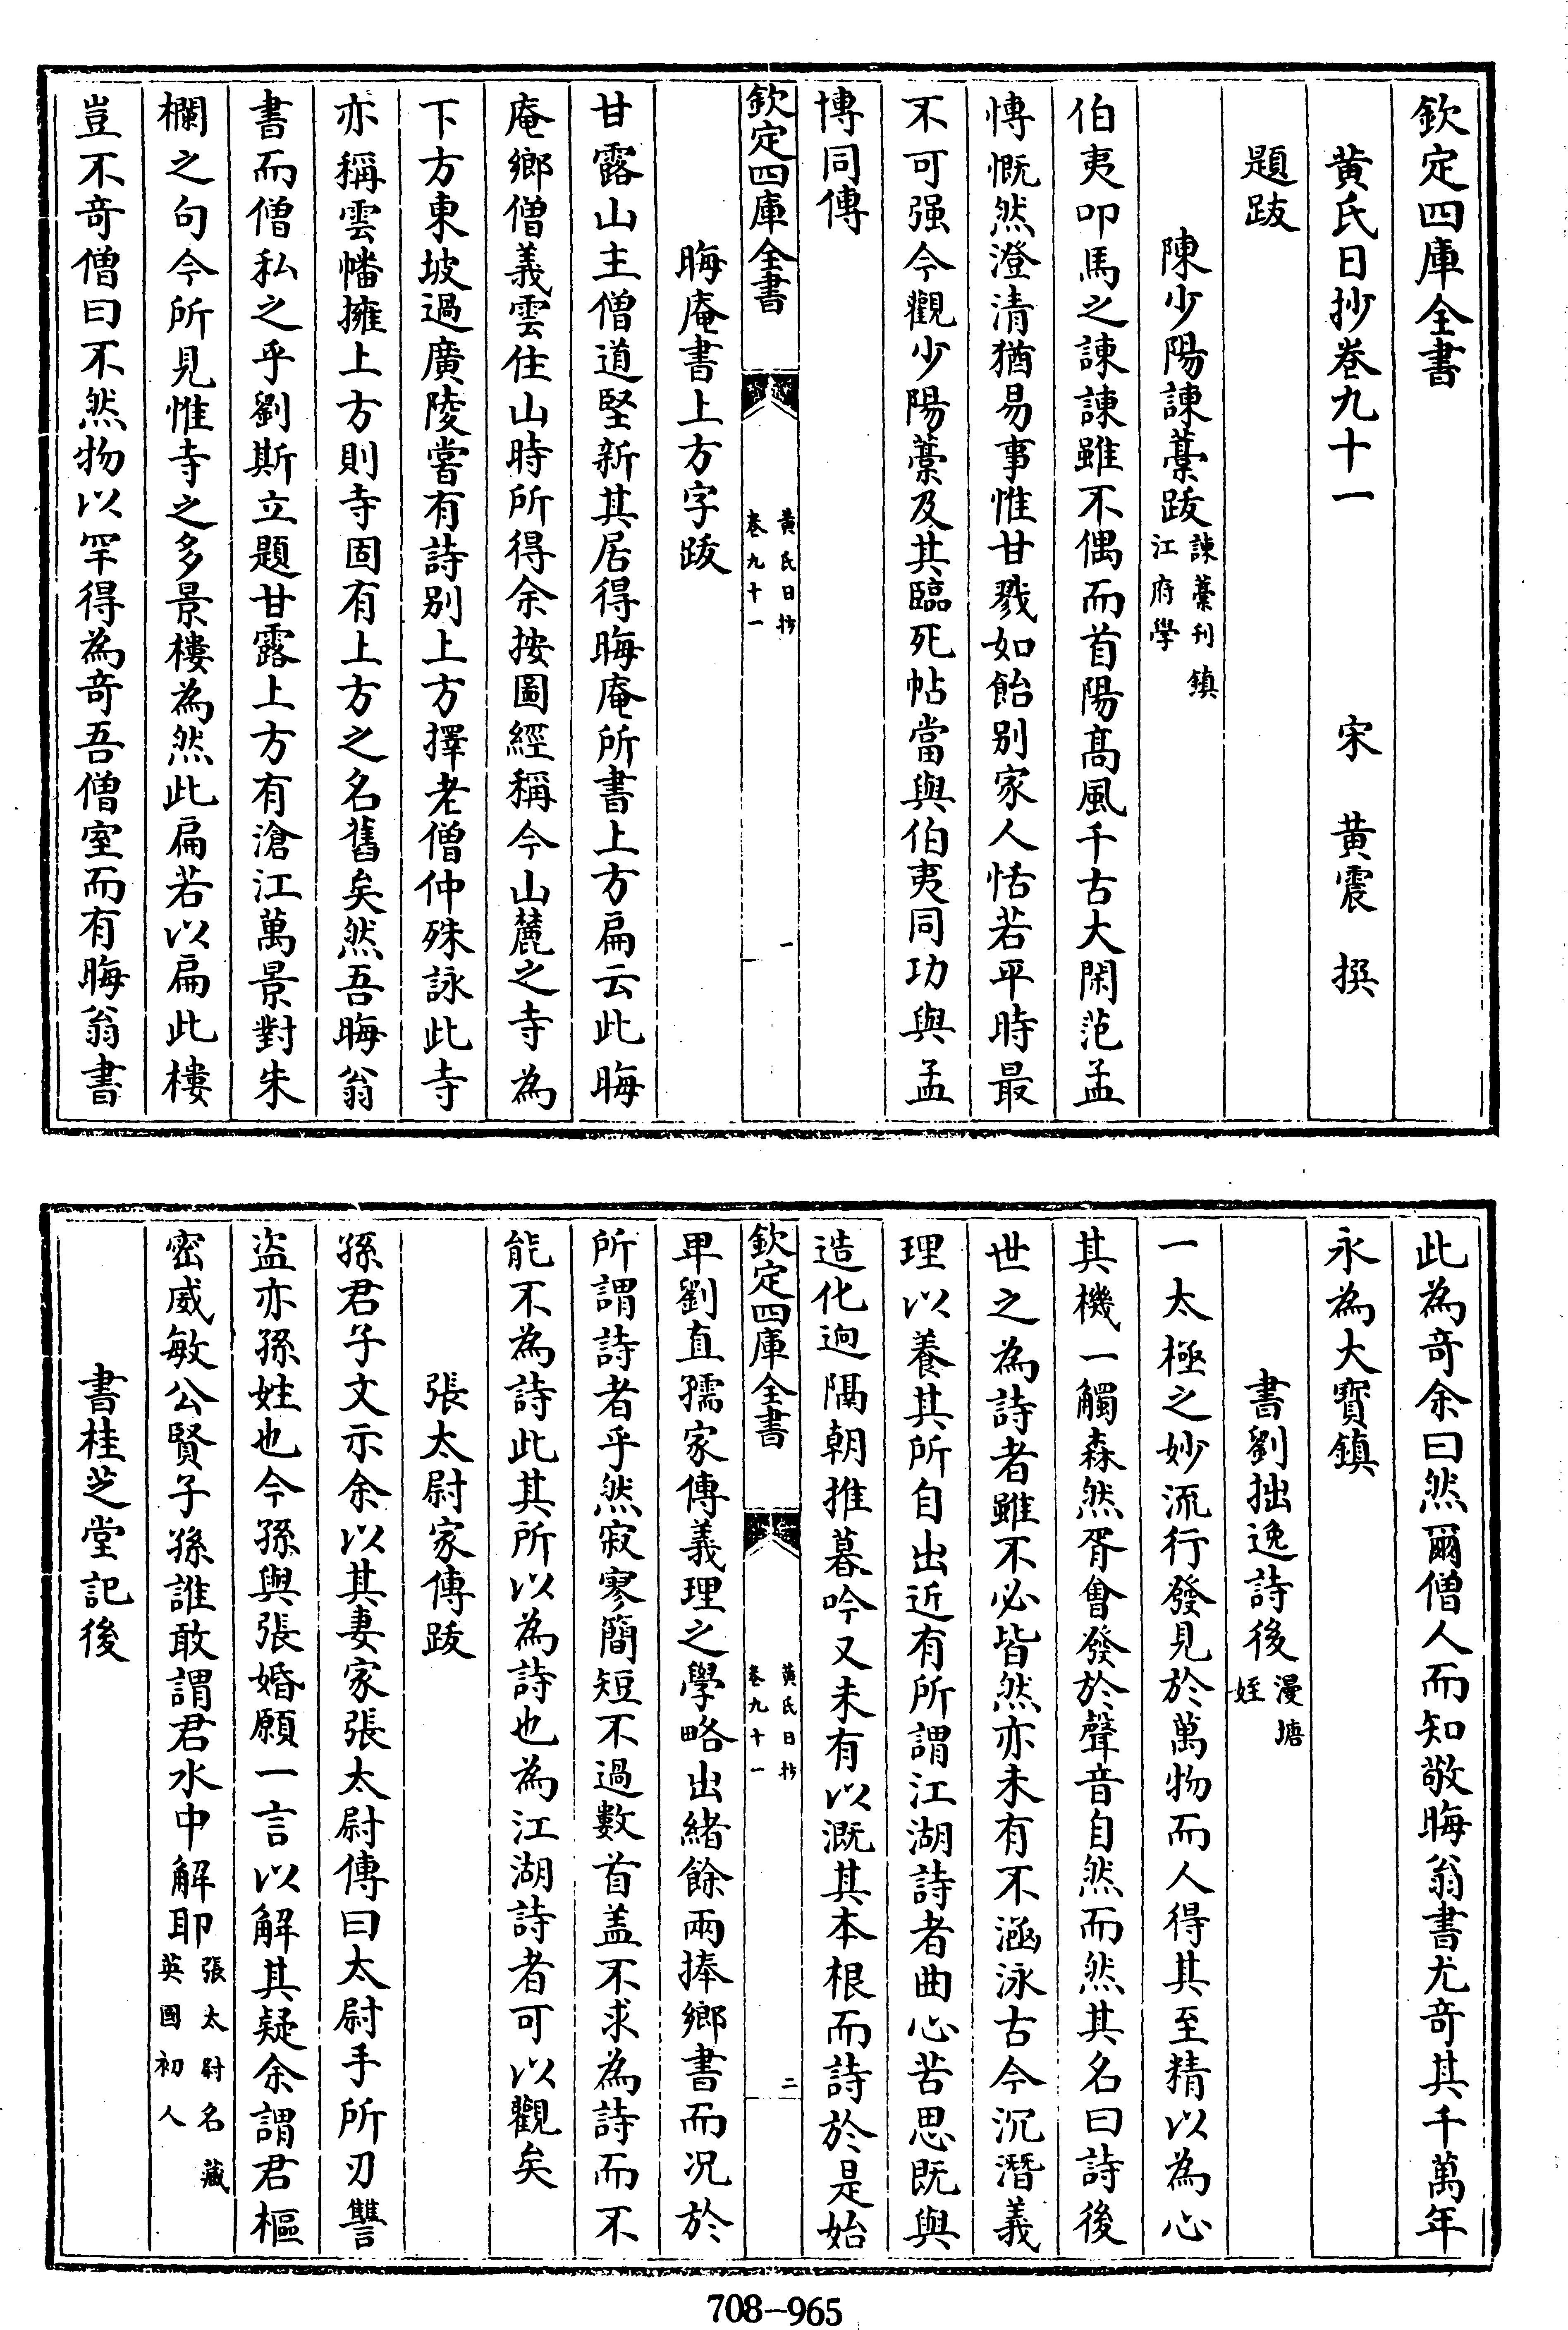 欽定四庫全書
黄氏日抄卷九十一　宋　黄震　撰
題跋
陳少陽諫藁跋諫藁刋鎮江府學
伯夷叩馬之諫諫雖不偶而首陽髙風千古大閑范孟
愽慨然澄清猶易事惟甘戮如飴别家人恬若平時最
不可强今觀少陽藁及其臨死帖當與伯夷同功與孟
博同傳
欽定四庫全書　黄氏日抄卷九十一　一
晦庵書上方字跋
甘露山主僧道堅新其居得晦庵所書上方扁云此晦
庵鄉僧義雲住山時所得余按圖經稱今山麓之寺為
下方東坡過廣陵嘗有詩别上方擇老僧仲殊詠此寺
亦稱雲幡擁上方則寺固有上方之名舊矣然吾晦翁
書而僧私之乎劉斯立題甘露上方有滄江萬景對朱
欄之句今所見惟寺之多景樓為然此扁若以扁此樓
豈不竒僧曰不然物以罕得為竒吾僧室而有晦翁書
此為竒余曰然爾僧人而知敬晦翁書尤竒其千萬年
永為大寳鎮
書劉拙逸詩後漫塘姪
一太極之妙流行發見於萬物而人得其至精以為心
其機一觸森然胥㑹發於聲音自然而然其名曰詩後
世之為詩者雖不必皆然亦未有不涵泳古今沉潛義
理以養其所自出近有所謂江湖詩者曲心苦思既與
造化逈隔朝推暮吟又未有以溉其本根而詩於是始
欽定四庫全書　黄氏日抄卷九十一　二
卑劉直孺家傳義理之學略出緒餘兩捧鄉書而况於
所謂詩者乎然寂寥簡短不過數首盖不求為詩而不
能不為詩此其所以為詩也為江湖詩者可以觀矣
張太尉家傳跋
孫君子文示余以其妻家張太尉傳曰太尉手所刃讐
盗亦孫姓也今孫與張婚願一言以解其疑余謂君樞
密威敏公賢子孫誰敢謂君水中解耶張太尉名藏英國初人
書桂芝堂記後
708-965